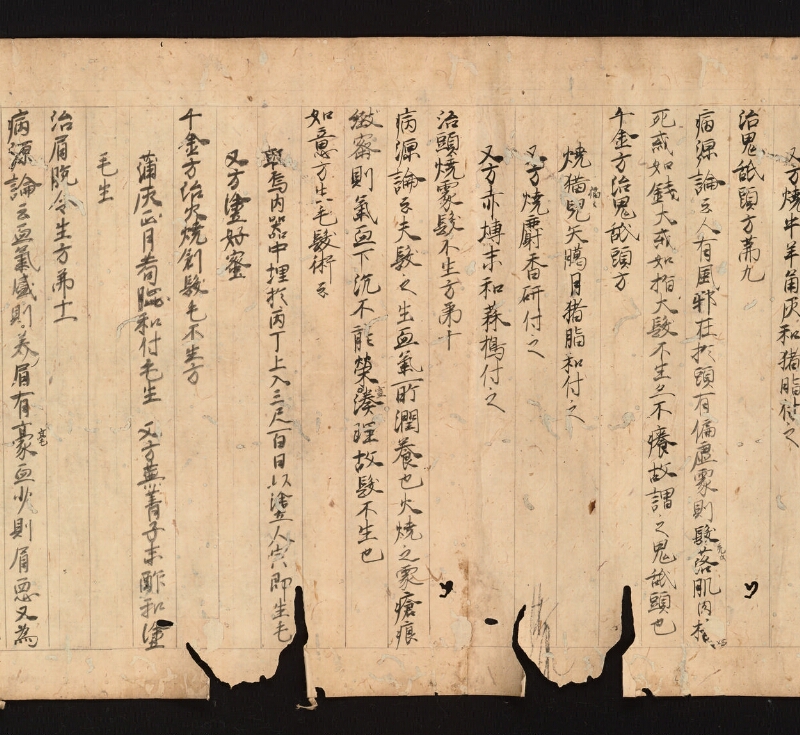 又方燒牛羊角灰和猪脂付之
治鬼舐頭方苐九
病源論云人有風邪在於頭有偏虛䖏則髮落肌肉枯
死或如錢大或如指大髮不生亦不癢故謂之鬼舐頭也
千金方治鬼舐頭方
燒猫兒矢臈月猪脂和付之
又方燒麝香研付之
又方赤塼末和蒜搗付之
治頭燒䖏髮不生方苐十
病源論云夫髮之生血氣所潤養也火燒之䖏瘡痕
緻密則氣血下沉不能榮湊理故髮不生也
如意方生毛髮術云
內器中埋於丙丁上入三尺一百日以塗人宍即生毛
又方塗好蜜
千金方治火燒創髮毛不生方
蒲灰正月狗腦和付毛生 又方蕪菁子末酢和塗
毛生
治眉脱令生方苐十一
病源論云血氣盛則養眉有豪血少則眉惡又為